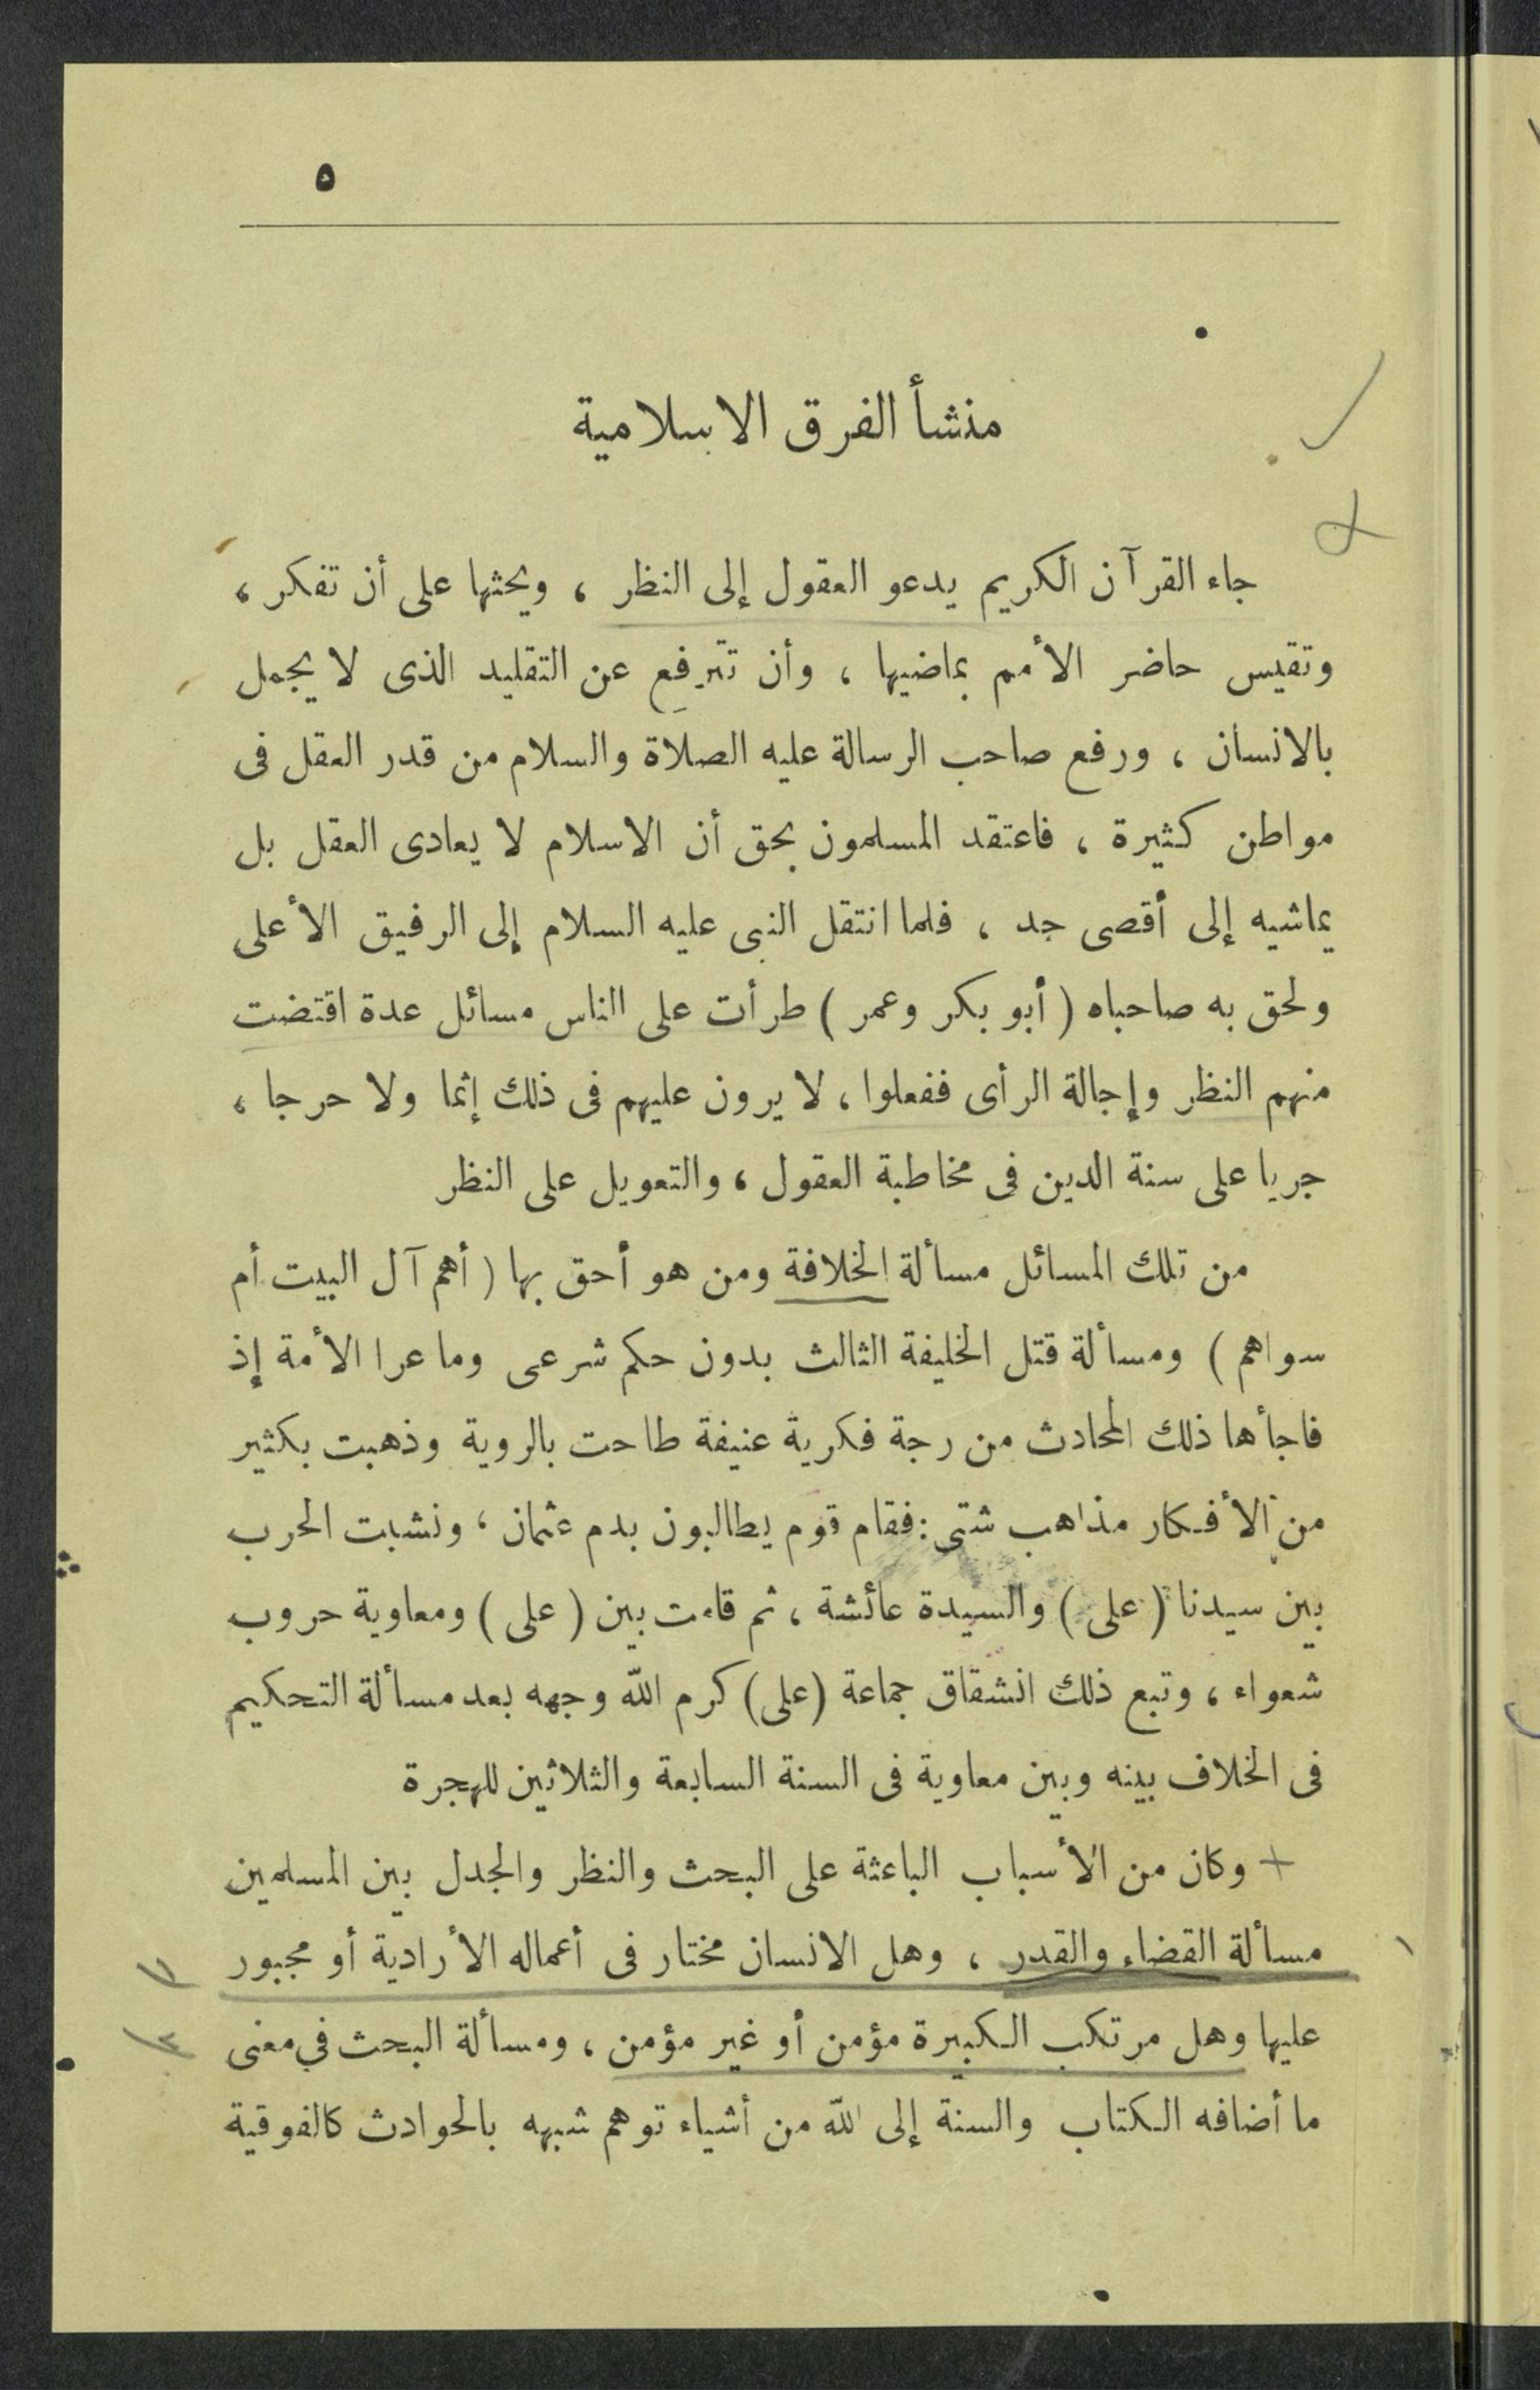 ٥
منشأ الفرق الاسلامية
جاء القرآن الكريم يدعو العقول إلى النظر ، ويحثها على أن تفكر ،
وتقيس حاضر الأمم بماضيها ، وأن تترفع عن التقليد الذى لا يجمل
بالانسان ، ورفع صاحب الرسالة عليه الصلاة والسلام من قدر العقل فى
مواطن كثيرة ، فاعتقد المسلمون بحق أن الاسلام لا يعادى العقل بل
يماشيه إلى أقصى حد ، فلما انتقل النبى عليه السلام إلى الرفيق الأعلى
ولحق به صاحباه ( أبو بكر وعمر ) طرأت على الناس مسائل عدة اقتضت
منهم النظر وإجالة الرأى ففعلوا ، لا يرون عليهم فى ذلك إثما ولا حرجا ،
جريا على سنة الدين فى مخاطبة العقول ، والتعويل على النظر
من تلك المسائل مسألة الخلافة ومن هو أحق بها ( أهم آل البيت أم
سواهم ) ومسألة قتل الخليفة الثالث بدون حكم شرعى وما عرا الأمة إذ
فاجأها ذلك الحادث من رجة فكرية عنيفة طاحت بالروية وذهبت بكثير
من الأفكار مذاهب شتى : فقام قوم يطالبون بدم عثمان ، ونشبت الحرب
بين سيدنا ( على ) والسيدة عائشة ، ثم قامت بين ( على ) ومعاوية حروب
شعواء ، وتبع ذلك انشقاق جماعة (على) كرم الله وجهه بعد مسألة التحكيم
فى الخلاف بينه وبين معاوية فى السنة السابعة والثلاثين للهجرة
+ وكان من الأسباب الباعثة على البحث والنظر والجدل بين المسلمين
١ مسألة القضاء والقدر ، وهل الانسان مختار فى أعماله الأرادية أو مجبور
عليها وهل مرتكب الكبيرة مؤمن أو غير مؤمن ، ومسألة البحث في معنى
ما أضافه الكتاب والسنة إلى الله من أشياء توهم شبهه بالحوادث كالفوقية